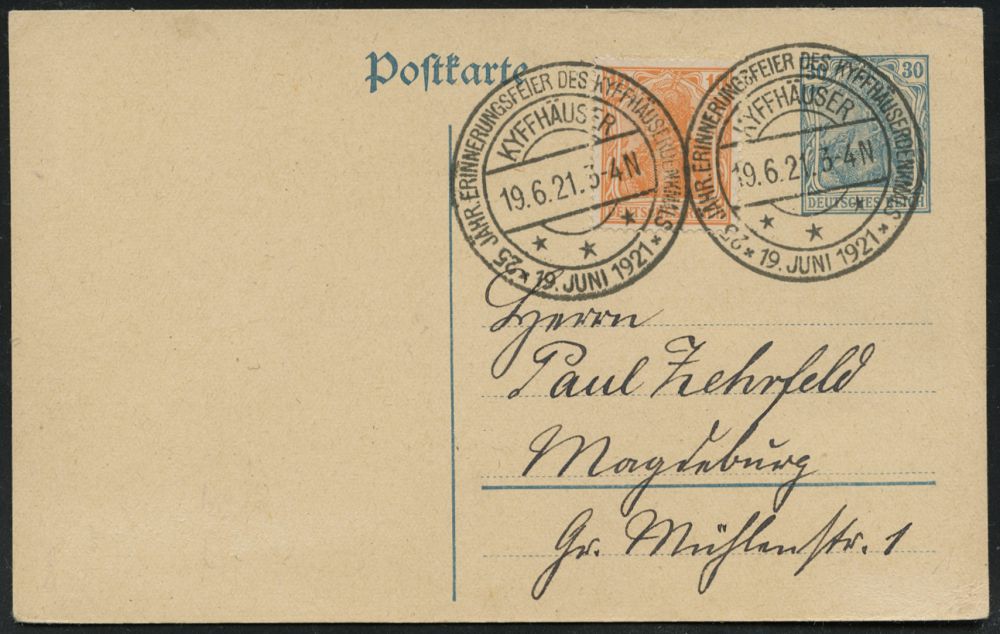 Postkarte
* 25 JÄHR. ERINNERUNGSFEIER DES KYFFHÄUSERDENKMALS * 19. JUNI 1921
KYFFHÄUSER
19.6.21. 3-4 N
* * *
* 25 JÄHR. ERINNERUNGSFEIER DES KYFFHÄUSERDENKMALS * 19. JUNI 1921
KYFFHÄUSER
19.6.21. 3-4 N
* * *
30 30
DEUTSCHES REICH
Herrn
Paul Zehrfeld
Magdeburg
Gr. Mühlenstr. 1